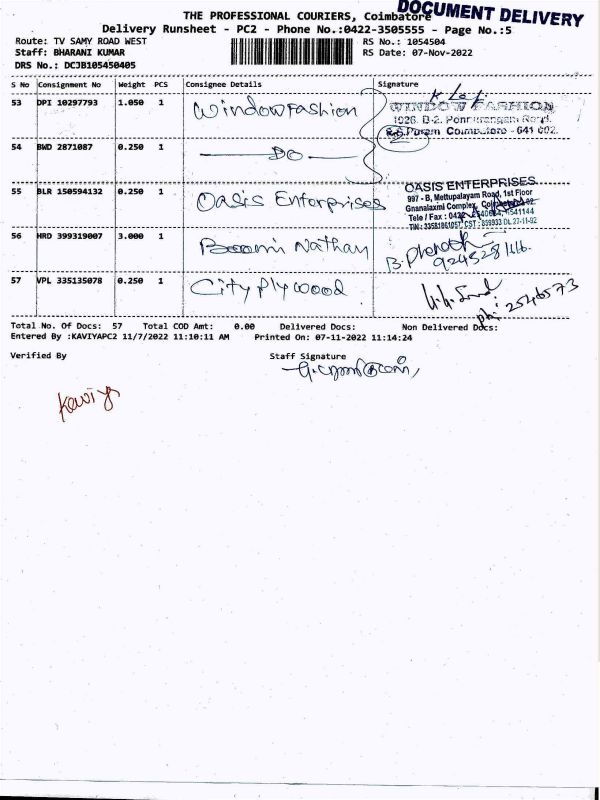 DOCUMENT DELIVERY
THE PROFESSIONAL COURIERS, Coimbatore
Delivery Runsheet - PC2 - Phone No.:0422-3505555 - Page No.:5
Route: TV SAMY ROAD WEST RS No.: 1054504
Staff: BHARANI KUMAR RS Date: 07-Nov-2022
DRS No.: DCJB105450405
S No Consignment No Weight PCS Consignee Details Signature
53 DPI 10297793 1.050 1 Window Fashion
WINDOW FASHION
1026, B-2, Ponnurangam Road,
R.S.Puram Coimbatore - 641 002.
54 BWD 2871087 0.250 1 DO
55 BLR 150594132 0.250 1 Oasis Enterprises
OASIS ENTERPRISES
997 - B, Mettupalayam Road, 1st Floor
Gnanalaxmi Complex,
Tele / Fax : 0422 2541144
TIN : 33581861057, CST : 839933 DL.27-11-92
56 HRD 399319007 3.000 1 Boomi Nathan
57 VPL 335135078 0.250 1 City plywood
ph: 2546573
Total No. Of Docs: 57 Total COD Amt: 0.00 Delivered Docs: Non Delivered Docs:
Entered By :KAVIYAPC2 11/7/2022 11:10:11 AM Printed On: 07-11-2022 11:14:24
Verified By Staff Signature
Kaviya